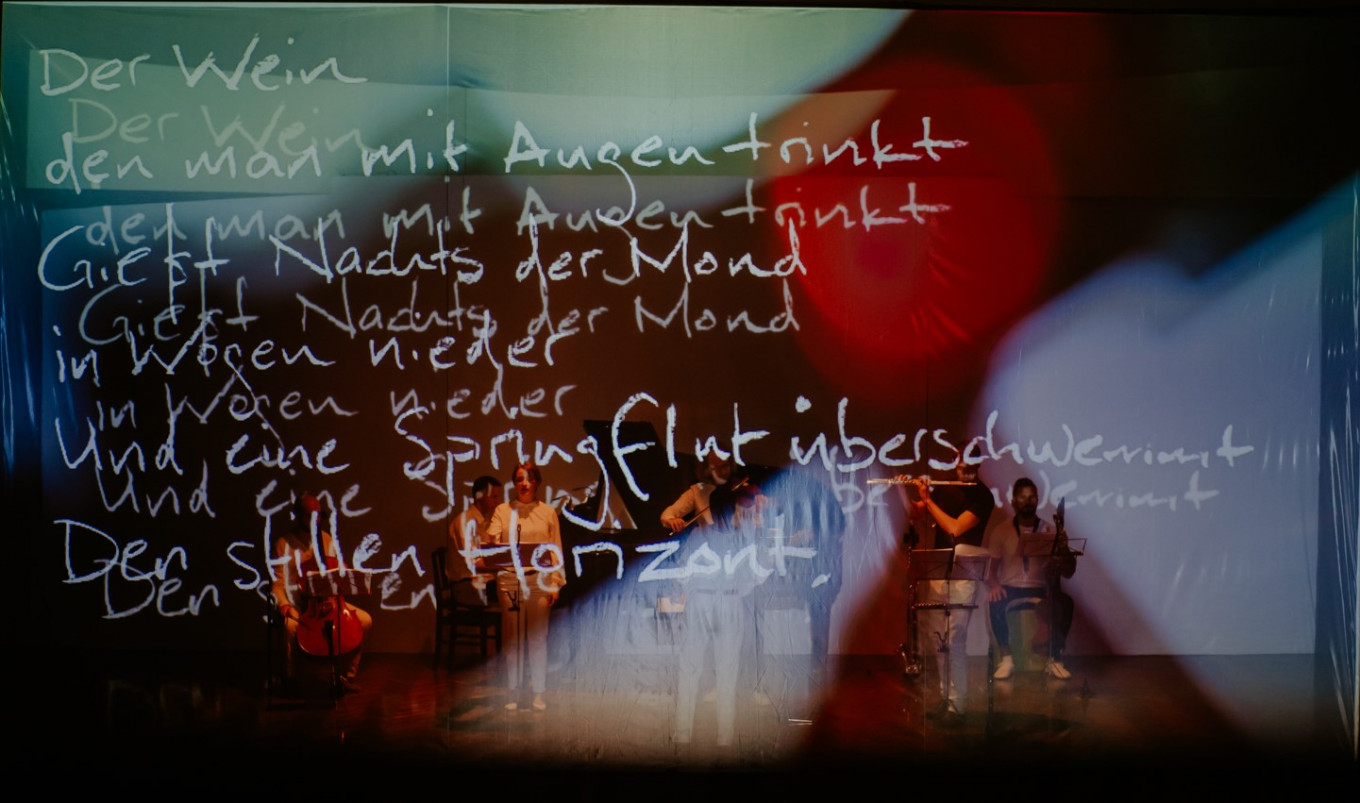 Der Wein
Der Wein
den man mit Augen trinkt
den man mit Augen trinkt
Gießt Nachts der Mond
Gießt Nachts der Mond
in Wogen nieder
in Wogen nieder
Und eine Springflut überschwemmt
Und eine
Den stillen Horizont.
Den